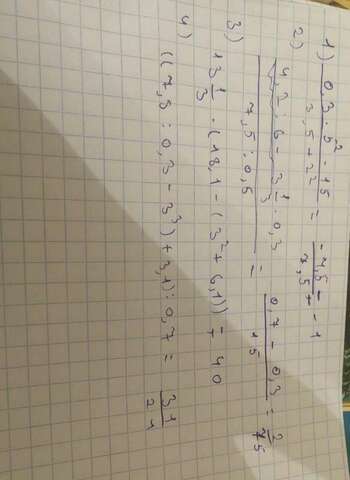 1) \frac{0,3 · 5² - 15}{3,5 + 2²} = \frac{-7,5}{7,5} = -1
2) \frac{4,2 : 6 - 3\frac{1}{3} · 0,3}{7,5 : 0,5} = \frac{0,7 - 0,3}{15} = \frac{2}{75}
3) 13\frac{1}{3} · (18,1 - (3² + 6,1)) = 40
4) ((7,5 : 0,3 - 3³) + 3,1) : 0,7 = \frac{31}{21}